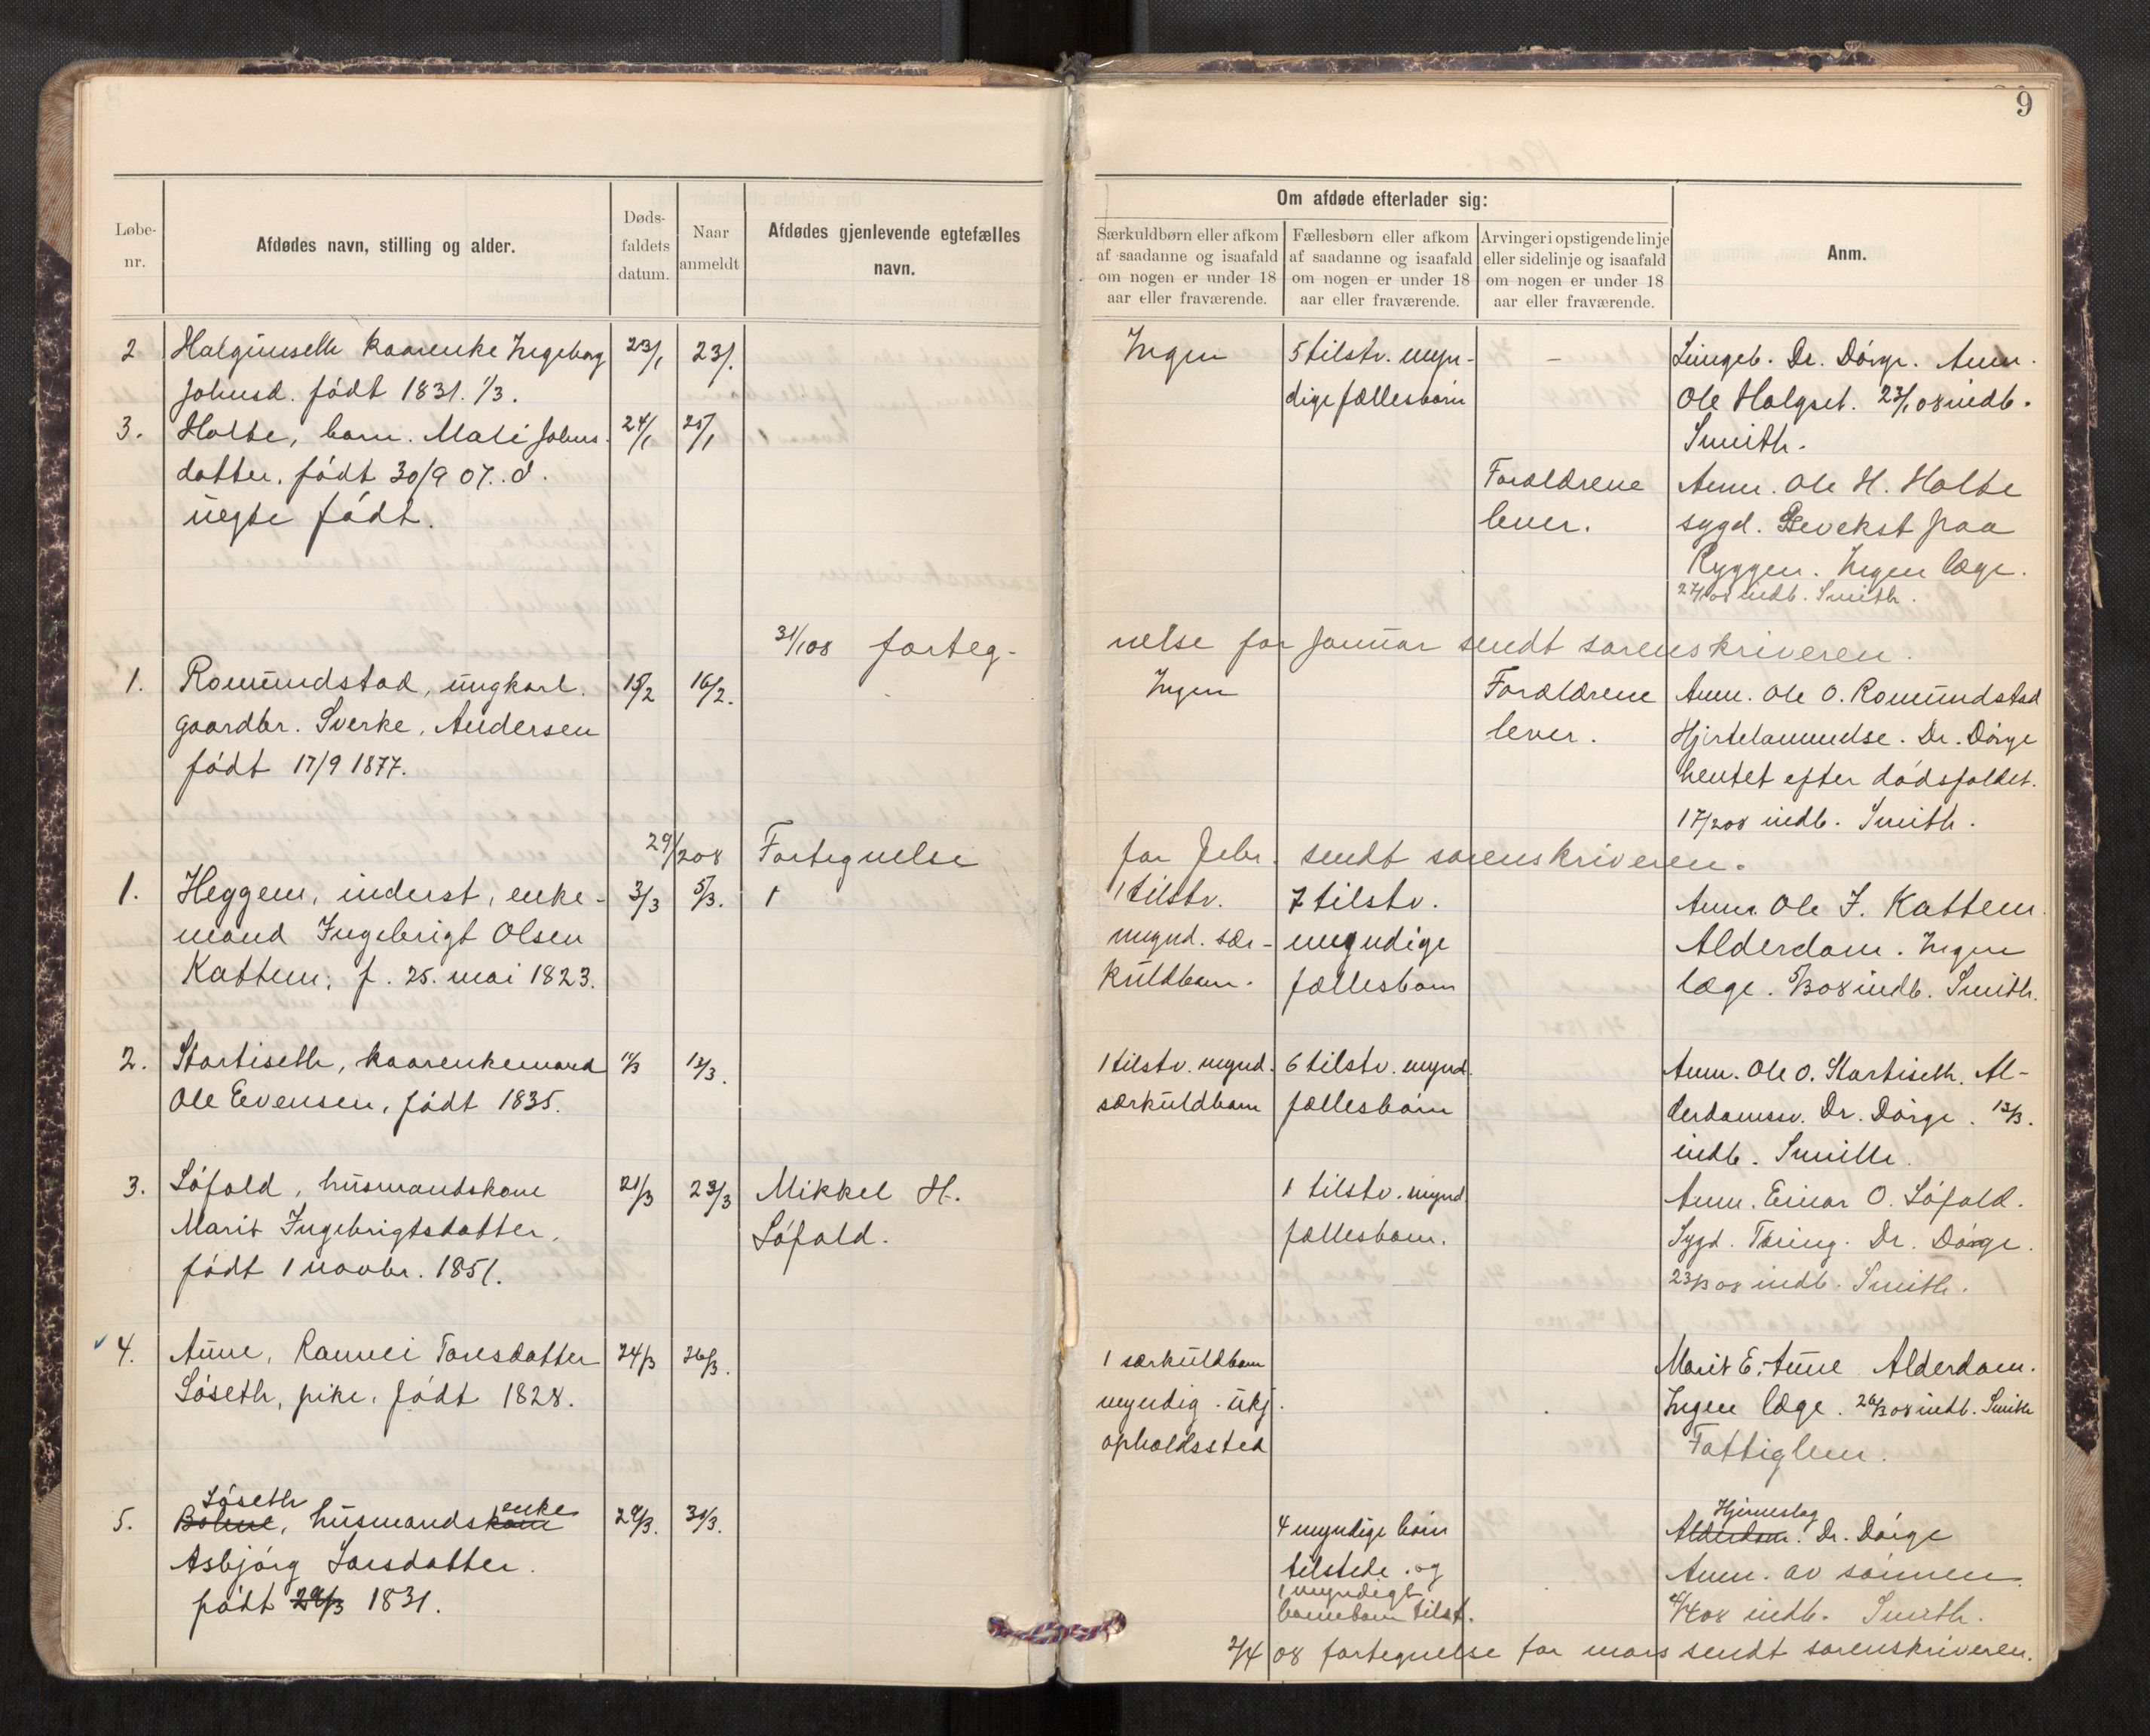 9
Om afdøde efterlader sig:
Løbe-
nr.
Afdødes navn, stilling og alder.
Døds-
faldets
datum.
Naar
anmeldt
Afdødes gjenlevende egtefælles
navn.
Særkuldbørn eller afkom
af saadanne og isaafald
om nogen er under 18
aar eller fraværende.
Fællesbørn eller afkom
af saadanne og isaafald
om nogen er under 18
aar eller fraværende.
Arvinger i opstigende linje
eller sidelinje og isaafald
om nogen er under 18
aar eller fraværende.
Anm.
2 Halgunseth kaarenke Ingeborg 23/1 23/1
Johnsd. født 1831. 1/3.
Ingen
5 tilstv. myn-
dige fællesbørn
-
Lungeb. Dr. Dörge. Anm.
Ole Halgset. 23/1 08 indb.
Smith.
3. Holte, barn. Mali Johns- 24/1 25/1
datter. født 30/9 07. d.
uegte født.
Forældrene
lever.
Anm. Ole H. Holte
sygd. Bevekst paa
Ryggen. Ingen læge.
27/1 08 indb. Smith.
31/1 08 forteg- nelse for Januar sendt sorenskriveren.
1. Romundstad, ungkarl. 15/2 16/2.
gaardbr. Sverke, Andersen
født 17/9 1877.
Ingen
Forældrene
lever.
Anm. Ole O. Romundstad
Hjertelammelse. Dr. Dörge
hentet efter dødsfaldet.
17/2 08 indb. Smith.
29/2 08 Fortegnelse for Febr. sendt sorenskriveren.
1. Heggem, inderst, enke- 3/3 5/3. 1
mand Ingebrigt Olsen
Kattem; f. 25. mai 1823.
1 tilstv.
mynd. sær-
kuldbarn.
7 tilstv.
myndige
fællesbarn
Anm. Ole J. Kattem.
Alderdom. Ingen
læge. 5/3 08 indb. Smith.
2. Stortiseth, kaarenkemand 11/3 12/3.
Ole Evensen, født 1835.
1 tilstv. mynd.
særkuldbarn
6 tilstv. mynd.
fællesbørn
Anm. Ole O. Stortiseth. Al-
derdomssv. Dr. Dörge. 12/3.
indb. Smith.
3. Løfald, husmandskone 21/3 23/3 Mikkel H.
Marit Ingebrigtsdatter. Løfald.
født 1 novbr. 1851.
1 tilstv. mynd.
fællesbarn.
Anm. Einar O. Løfald.
Sygd. Tæring. Dr. Dörge.
23/3 08 indb. Smith.
4. Aune, Rannei Toresdatter 24/3 26/3.
Løseth, pike, født 1828.
1 særkuldbarn
myndig. ukj.
opholdssted
Marit E. Aune Alderdom.
Ingen læge. 26/3 08 indb. Smith
Fattiglem.
Løseth enke
5. Bolme, husmandskone 29/3. 30/3.
Asbjörg Larsdatter.
født 29/3 1831.
4 myndige børn
tilstede. og
1 myndigt
barnebarn tilst.
Hjerneslag
Alderdom. Dr. Dörge
Anm. av sønnen.
4/4 08 indb. Smith.
2/4 08 fortegnelse for mars sendt sorenskriveren.